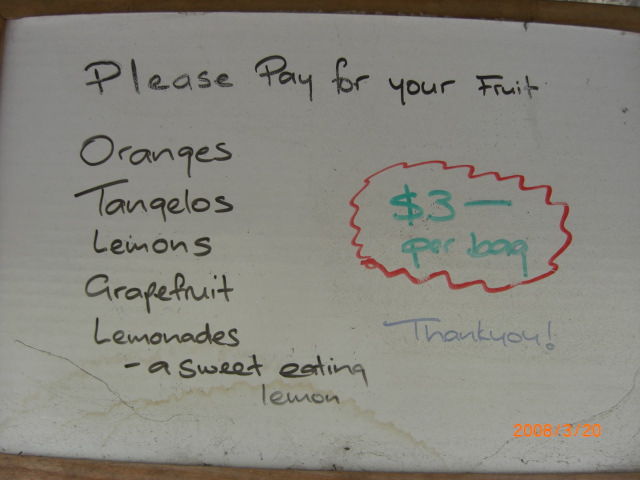 Please Pay for your Fruit
Oranges
Tangelos
Lemons
Grapefruit
Lemonades
- a sweet eating
lemon
$3 —
per bag
Thankyou!
2008/3/20